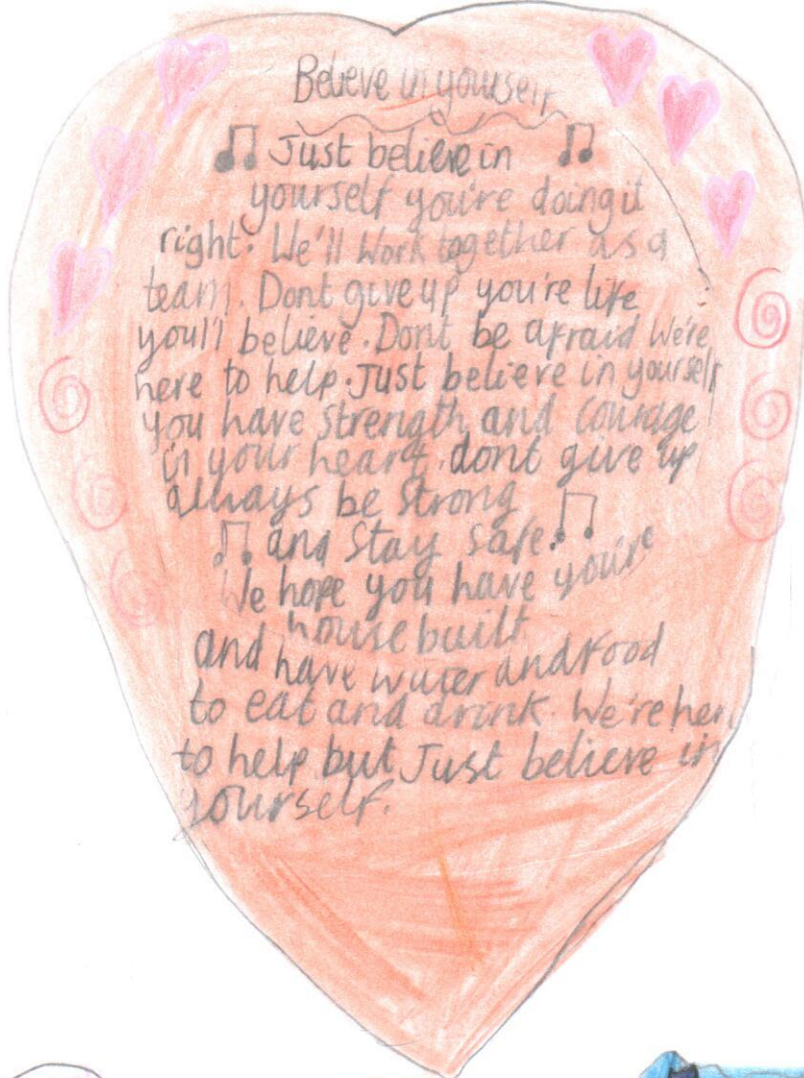 Believe in yourself
Just believe in
yourself you're doing it
right. We'll work together as a
team. Dont give up you're life
you'll believe. Dont be afraid We're
here to help. Just believe in yourself
you have strength and courage
in your heart. dont give up
always be strong
and stay safe.
We hope you have you're
house built
and have water and food
to eat and drink. We're her
to help but Just believe in
yourself.